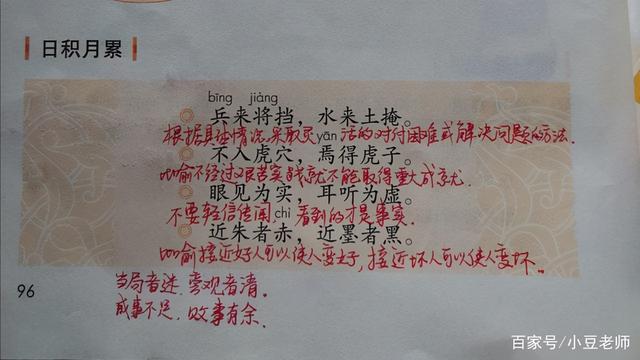 日积月累
bīng jiàng
兵来将挡，水来土掩。
根据具体情况,采取灵 yǎn 活的对付困难或解决问题的方法.
不入虎穴，焉得虎子。
比喻不经过艰苦实践就不能取得重大成就.
眼见为实，耳听为虚。
不要轻信传闻 chì 看到的才是事实.
近朱者赤，近墨者黑。
比喻接近好人可以使人变好,接近坏人可以使人变坏.
当局者迷,旁观者清.
96
成事不足,败事有余.
百家号/小豆老师